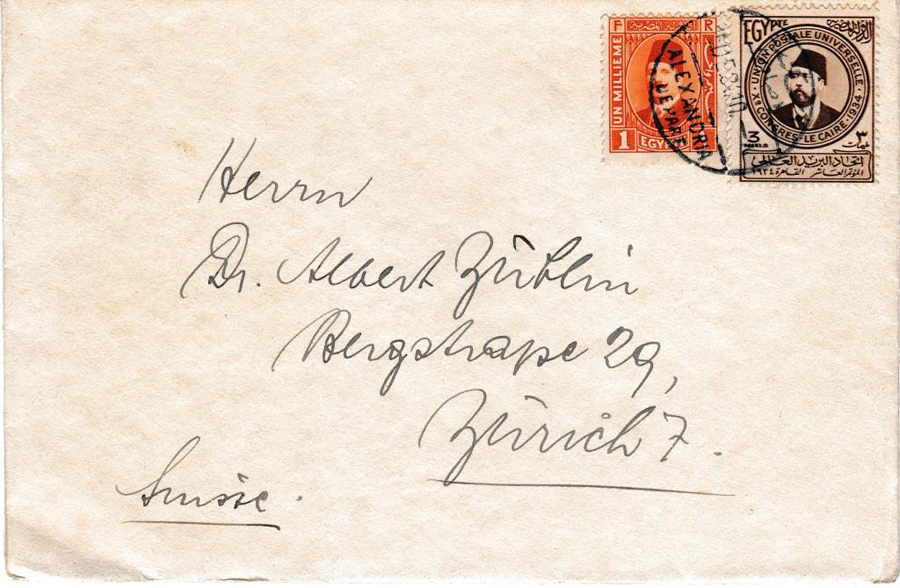 F R
UN MILLIEME
1 EGYPTE
ALEXANDRIA
EGYPTE
UNION POSTALE UNIVERSELLE
Xe CONGRES-LE CAIRE-1934
3 ٣
اتحاد البريد العالمى
المؤتمر العاشر القاهرة ١٩٣٤
Herrn
Dr. Albert Züblin
Bergstraße 29,
Zürich 7.
Suisse.